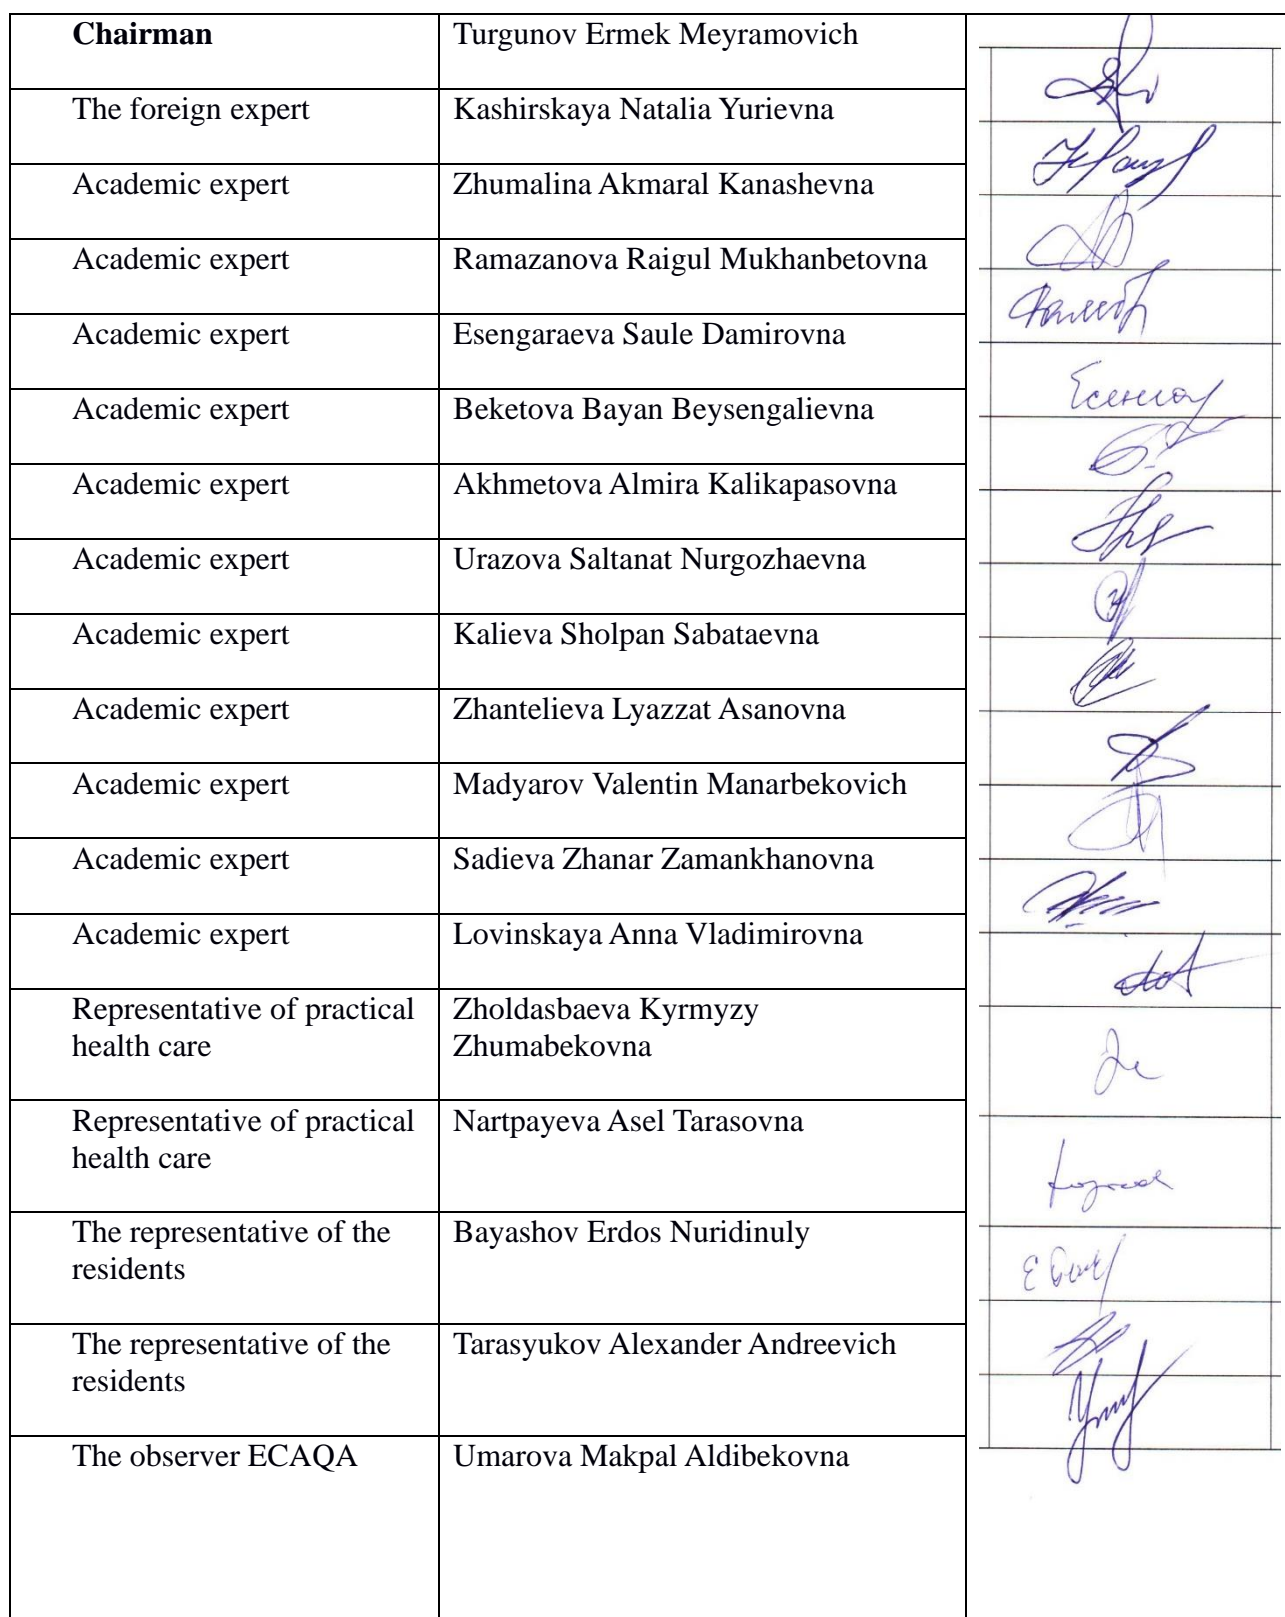 Chairman Turgunov Ermek Meyramovich
The foreign expert Kashirskaya Natalia Yurievna
Academic expert Zhumalina Akmaral Kanashevna
Academic expert Ramazanova Raigul Mukhanbetovna
Academic expert Esengaraeva Saule Damirovna
Academic expert Beketova Bayan Beysengalievna
Academic expert Akhmetova Almira Kalikapasovna
Academic expert Urazova Saltanat Nurgozhaevna
Academic expert Kalieva Sholpan Sabataevna
Academic expert Zhantelieva Lyazzat Asanovna
Academic expert Madyarov Valentin Manarbekovich
Academic expert Sadieva Zhanar Zamankhanovna
Academic expert Lovinskaya Anna Vladimirovna
Representative of practical
health care
Zholdasbaeva Kyrmyzy
Zhumabekovna
Representative of practical
health care
Nartpayeva Asel Tarasovna
The representative of the
residents
Bayashov Erdos Nuridinuly
The representative of the
residents
Tarasyukov Alexander Andreevich
The observer ECAQA Umarova Makpal Aldibekovna